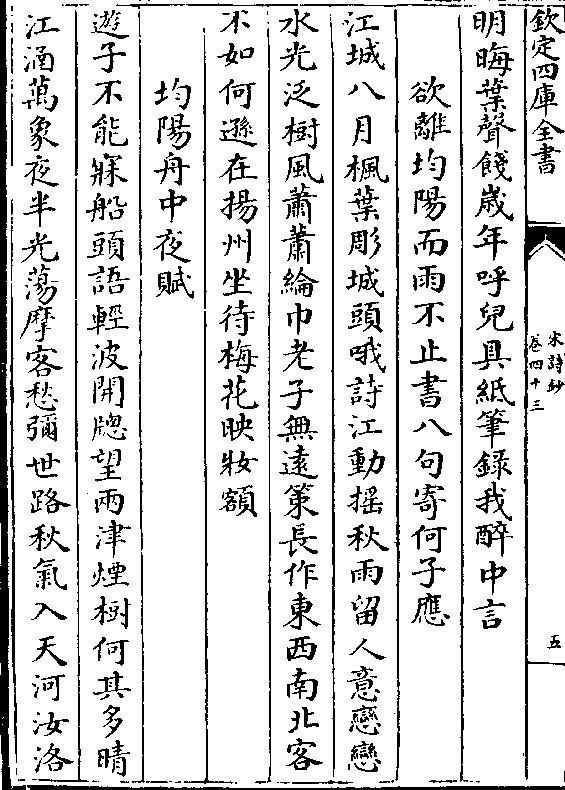 欽定四庫全書
宋詩鈔
卷四十三
五
明晦葉聲餞歲年呼兒具紙筆録我醉中言
欲離均陽而雨不止書八句寄何子應
江城八月楓葉彫城頭哦詩江動揺秋雨留人意戀戀
水光泛樹風蕭蕭綸巾老子無逺策長作東西南北客
不如何遜在揚州坐待梅花映妝額
均陽舟中夜賦
遊子不能寐船頭語輕波開窓望兩津煙樹何其多晴
江涵萬象夜半光蕩摩客愁彌世路秋氣入天河汝洛